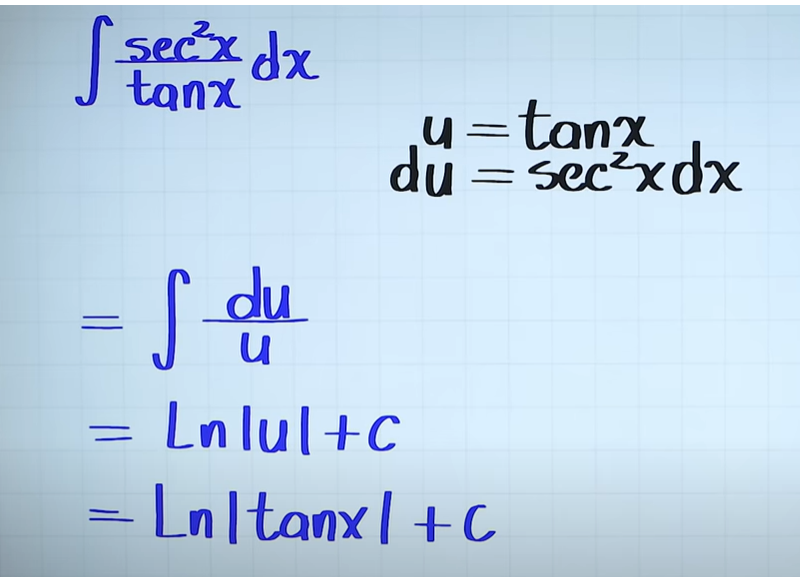 ∫ sec²x/tanx dx
u = tanx
du = sec²x dx
= ∫ du/u
= Ln|u| + c
= Ln|tanx| + c